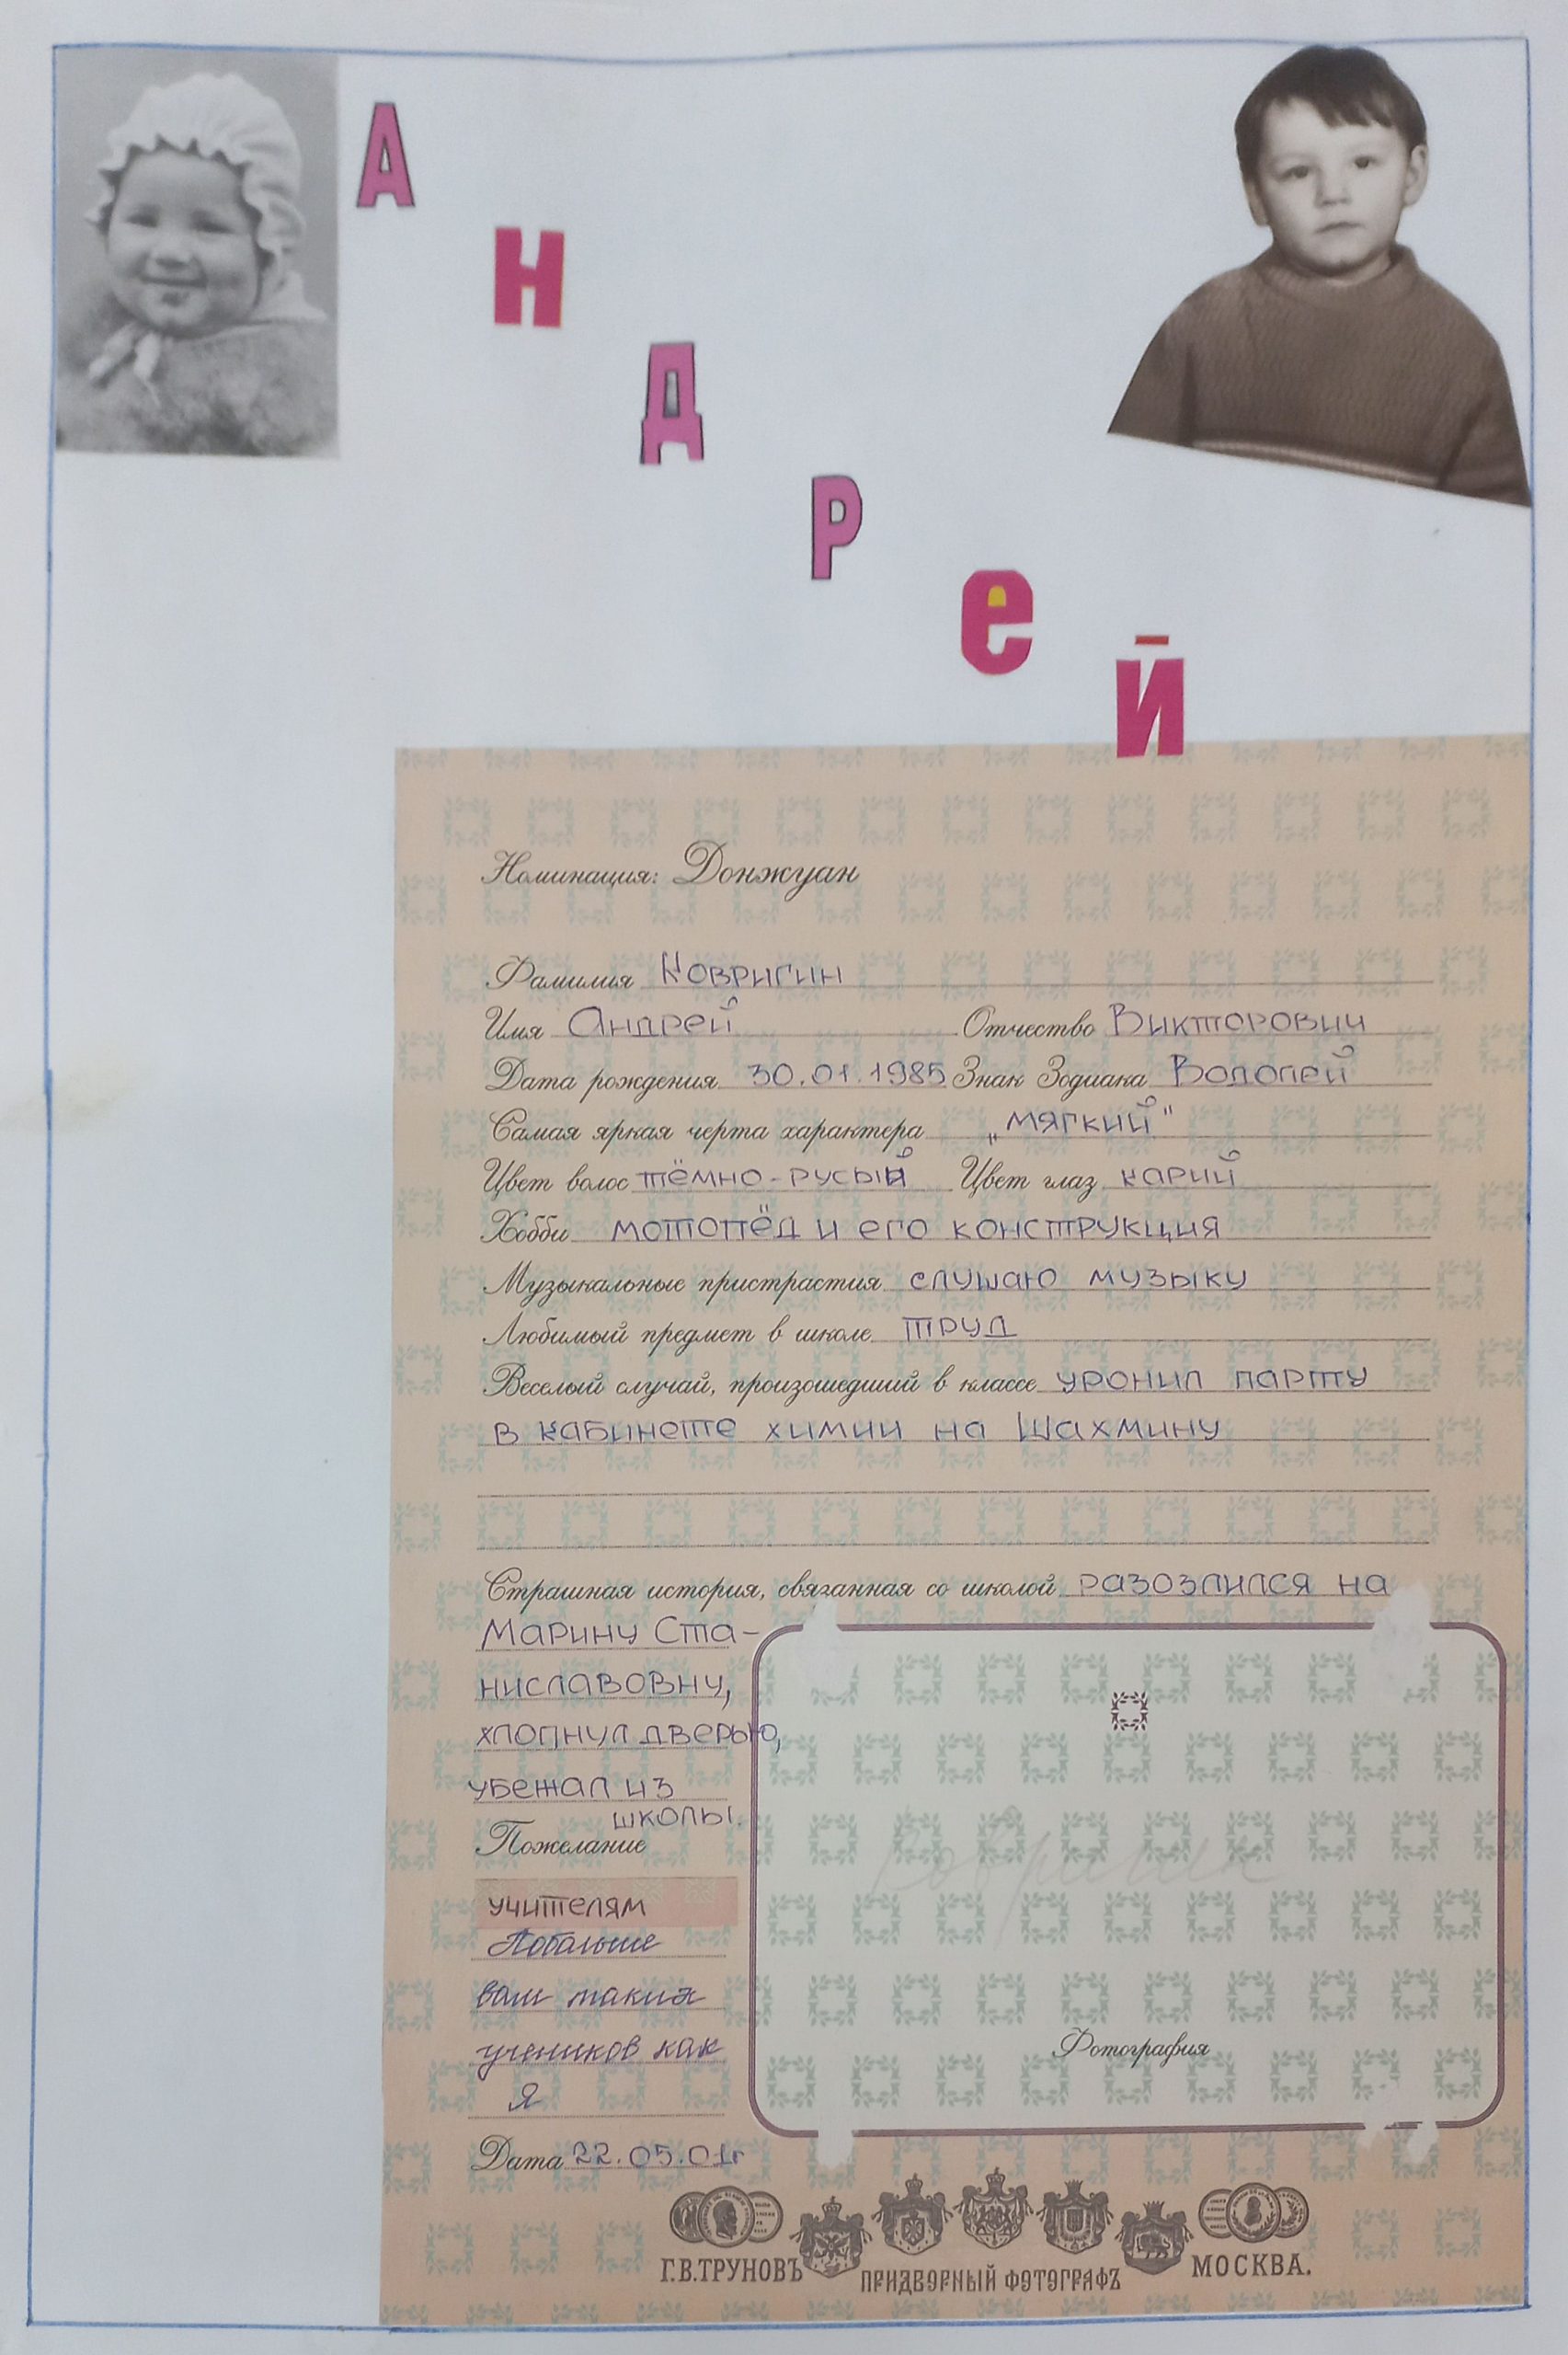 Андрей
Номинация: Донжуан
Фамилия Ковригин
Имя Андрей Отчество Викторович
Дата рождения 30.01.1985 Знак Зодиака Водолей
Самая яркая черта характера „мягкий"
Цвет волос тёмно-русый Цвет глаз карий
Хобби мотопёд и его конструкция
Музыкальные пристрастия слушаю музыку
Любимый предмет в школе труд
Веселый случай, произошедший в классе уронил парту
в кабинете химии на Шахмину
Страшная история, связанная со школой разозлился на
Марину Ста-
ниславовну,
хлопнул дверью,
убежал из
школы.
Пожелание
учителям
Побольше
вам таких
учеников как
Я
Фотография
Дата 22.05.01г
Г.В.ТРУНОВЪ ПРИДВОРНЫЙ ФОТОГРАФЪ МОСКВА.